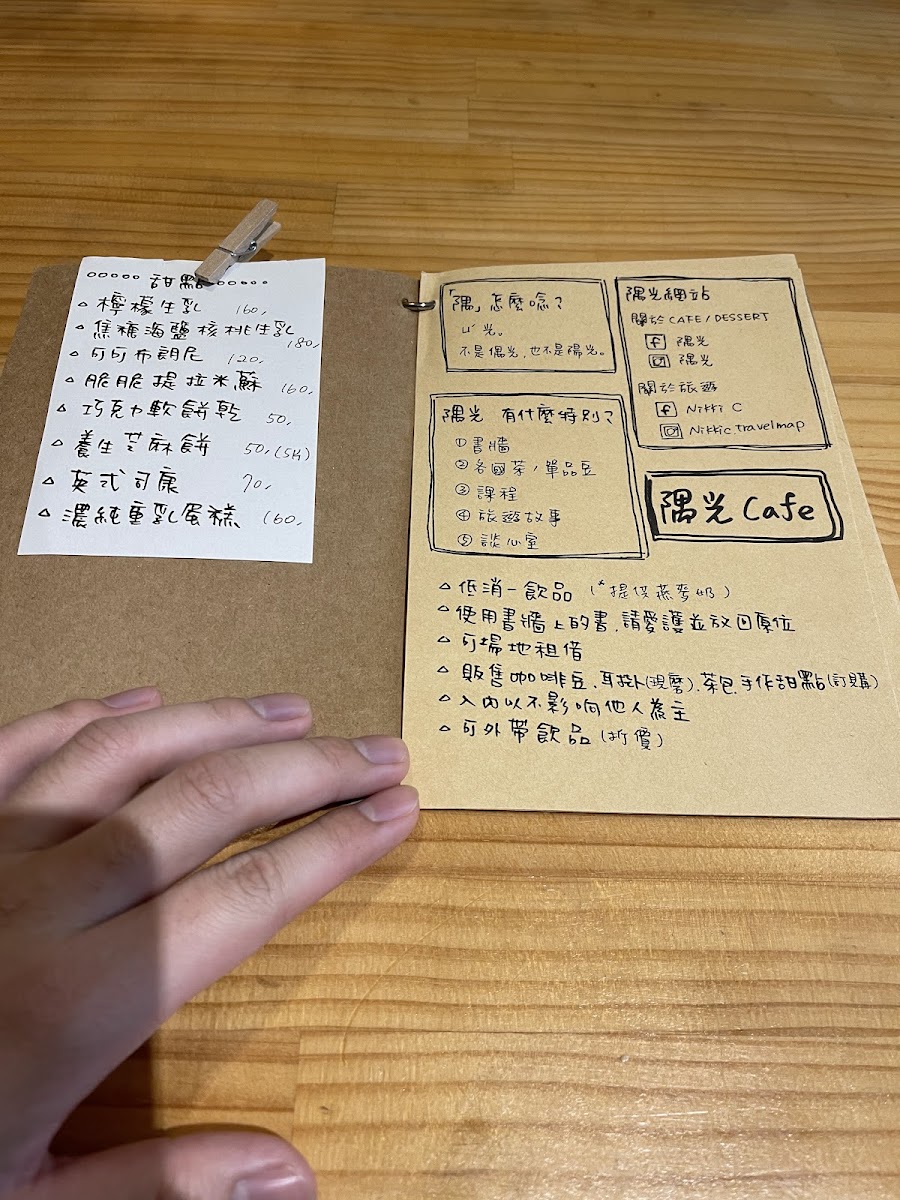 甜點
檸檬生乳 160,
焦糖海鹽核桃生乳 180,
可可布朗尼 120,
脆脆提拉米蘇 160,
巧克力軟餅乾 50,
養生芝麻餅 50,(5片)
英式司康 70,
濃純重乳蛋糕 160,
「隅」怎麼唸?
ㄩˊ光。
不是偶光,也不是陽光。
隅光網站
關於CAFE/DESSERT
隅光
隅光
關於旅遊
Nikki C
Nikkic.travelmap
隅光 有什麼特別?
①書牆
②各國茶/單品豆
③課程
④旅遊故事
⑤談心室
隅光 Cafe
低消一飲品 (*提供燕麥奶)
使用書牆上的書,請愛護並放回原位
可場地租借
販售咖啡豆、耳掛(現磨)、茶包、手作甜點(訂購)
入內以不影响他人為主
可外帶飲品(折價)